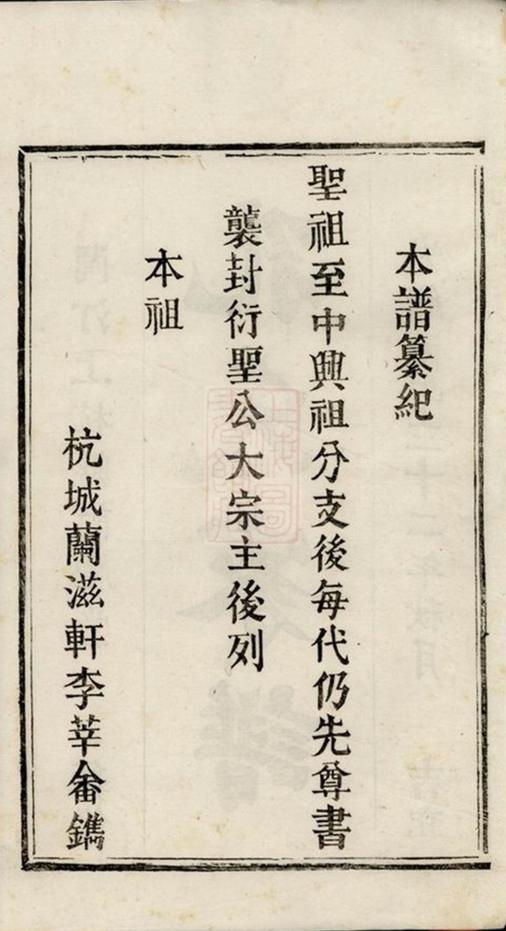 本譜纂紀
聖祖至中興祖分支後每代仍先尊書
襲封衍聖公大宗主後列
本祖
杭城蘭滋軒李莘畬鐫